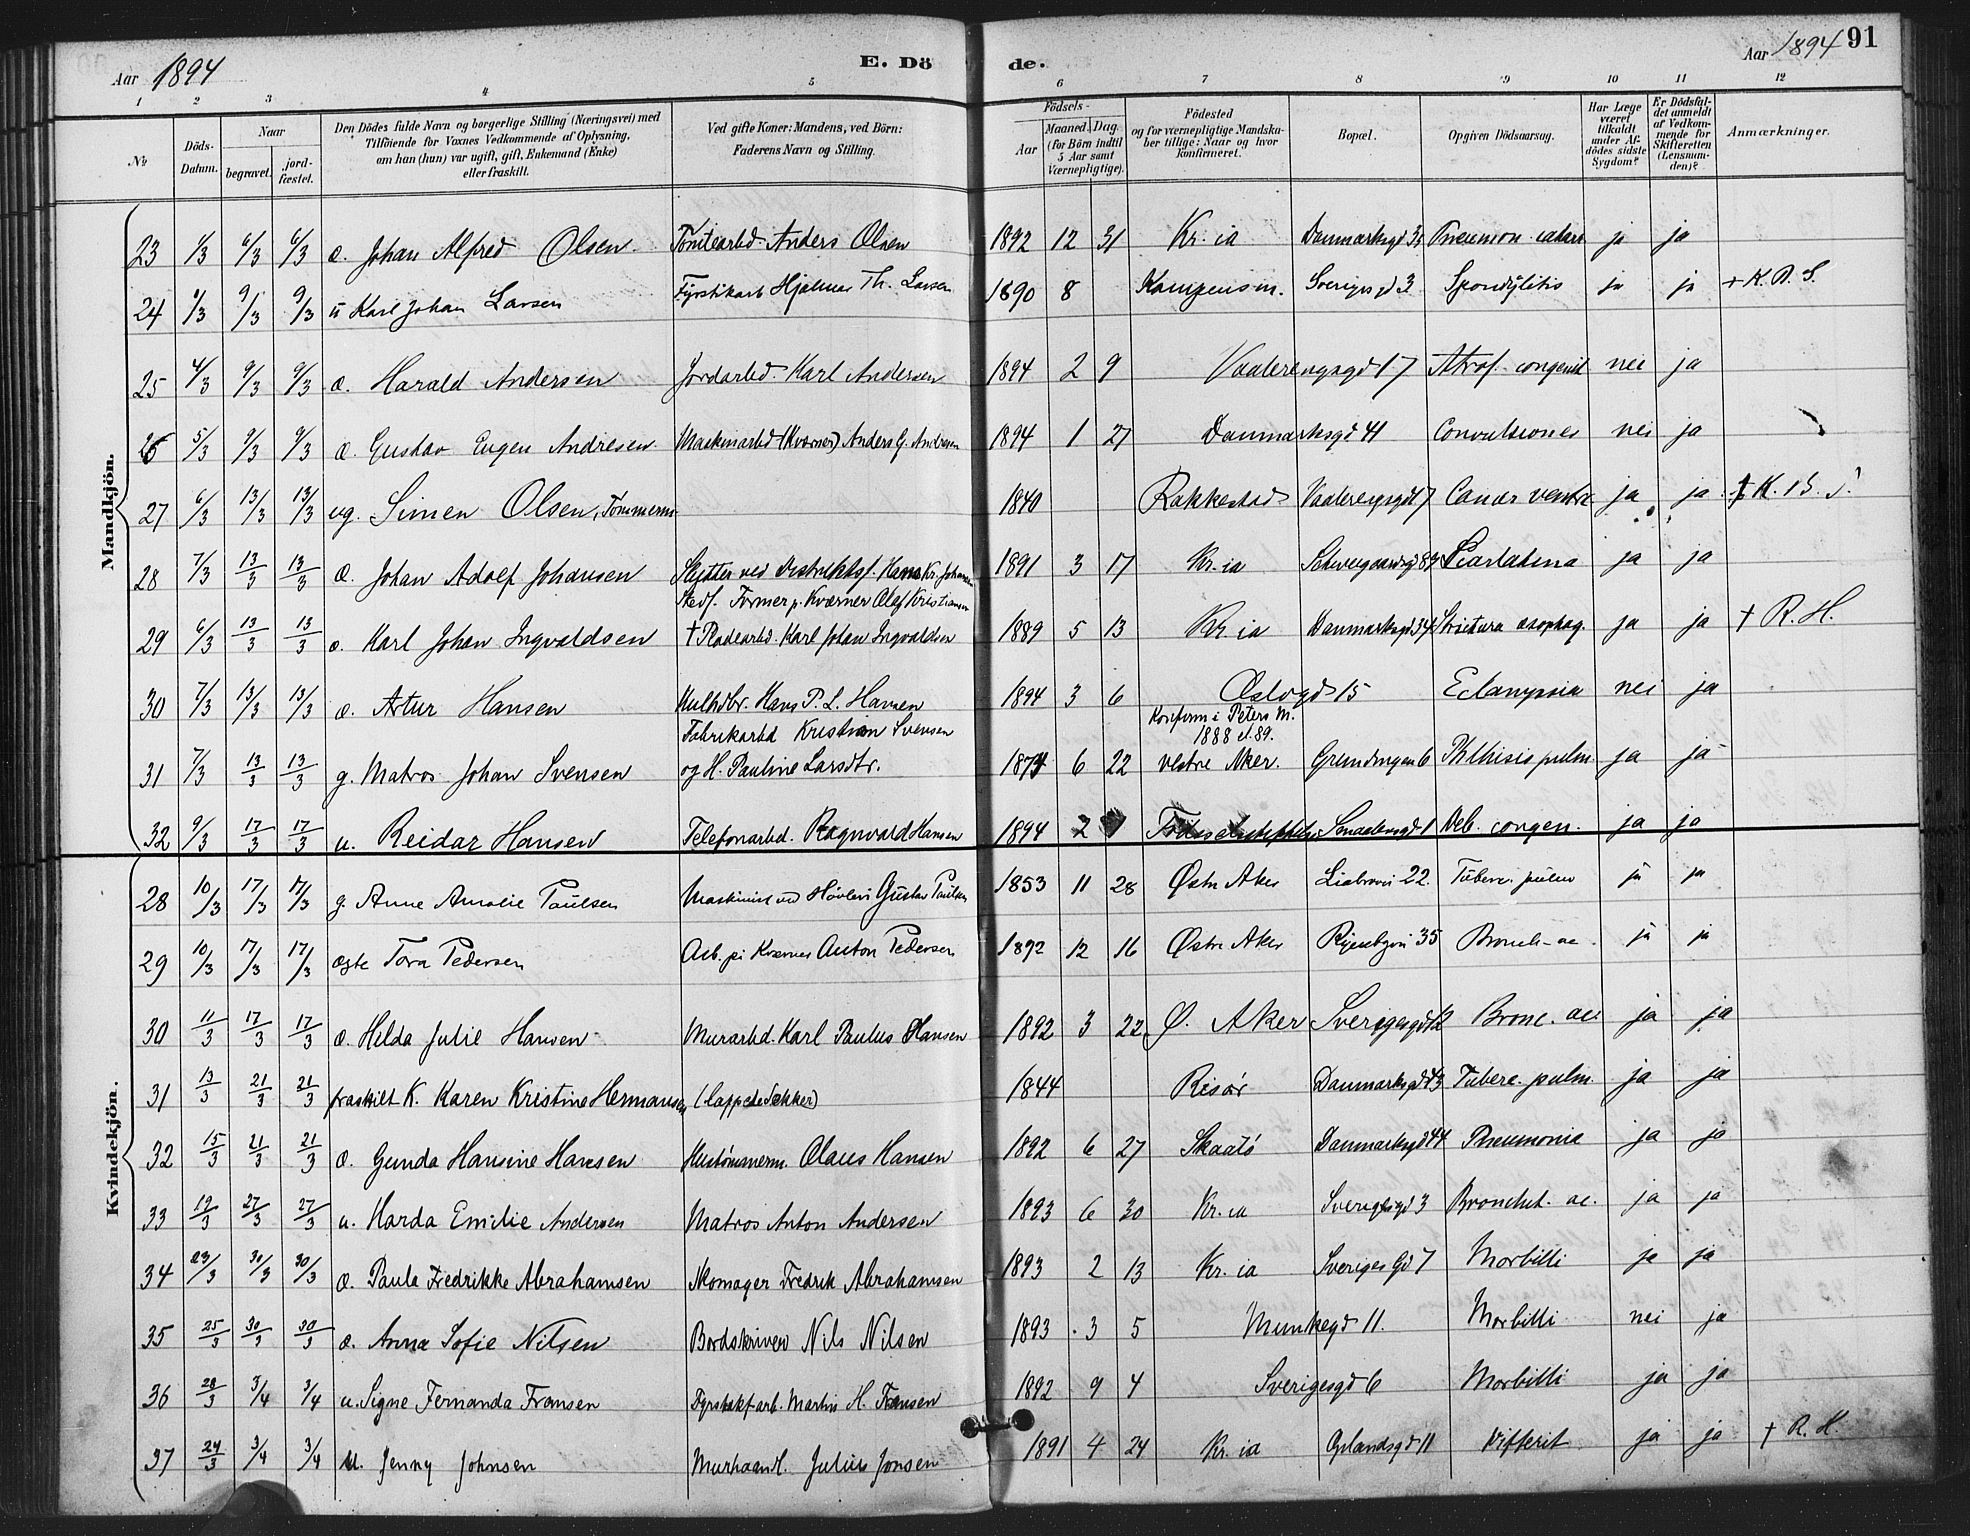 Aar 1894
E. Dö de.
Aar 1894 91
1 2 3 4 5 6 7 8 9 10 11 12
No
Döds-Datum.
Naar
begravet.
jord-fæstet.
Den Dödes fulde Navn og borgerlige Stilling (Næringsvei) med
Tilföiende for Voxnes Vedkommende af Oplysning,
om han (hun) var ugift, gift, Enkemand (Enke)
eller fraskilt.
Ved gifte Koner: Mandens, ved Börn:
Faderens Navn og Stilling.
Födsels-
Aar
Maaned. Dag.
(for Börn indtil
5 Aar samt
Værnepligtige).
Födested
og for værnepligtige Mandska-
ber tillige: Naar og hvor
konfirmeret.
Bopæl.
Opgiven Dödsaarsag.
Har Læge
været
tilkaldt
under Af-
dödes sidste
Sygdom?
Er Dödsfal-
det anmeldt
af Vedkom-
mende for
Skifteretten
(Lensman-
den)?
Anmærkninger.
Mandkjön.
23 1/3 6/3 6/3 æ. Johan Alfred Olsen Tomtearbd. Anders Olsen 1892 12 31 Kr.ia Danmarksgd 35 Pneumon. catarr ja ja
24 1/3 9/3 9/3 u Karl Johan Larsen Fyrstikarb Hjalmar Th. Larsen 1890 8 Kampens m. Sverigesgd 3 Spondylitis ja ja + K. R. S.
25 4/3 9/3 9/3 æ. Harald Andersen Jordarbd. Karl Andersen 1894 2 9 Vaalerengsgd 17 Atrof. congenit nei ja
26 5/3 9/3 9/3 æ. Gustav Eugen Andresen Maskinarbd (Kværner) Anders G. Andresen 1894 1 27 Danmarksgd 41 Convulsiones nei ja
27 6/3 13/3 13/3 ug. Simen Olsen, Tømmerm 1840 Rakkestad Vaalerengsgd 17 Cancer ventr. ja ja
28 7/3 13/3 13/3 æ. Johan Adolf Johansen Skytter ved Distriktsf. Hans Kr. Johansen 1891 3 17 Kr.ia Schweigaardsgd 89 Scarlatina ja ja
Stedf. Former p. Kværner Olaf Kristiansen
29 6/3 13/3 13/3 æ. Karl Johan Ingvaldsen † Pladearbd. Karl Johan Ingvaldsen 1889 5 13 Kr.ia Danmarksgd 34 Strictura oesophag. ja ja † R. H.
30 7/3 13/3 13/3 æ. Artur Hansen Kulhdlr. Hans P. L. Hansen 1894 3 6 Oslogd 15 Eclampsia nei ja
Fabrikarbd Kristian Svensen
Konfirm i Peters M.
1888 el. 89.
31 7/3 13/3 13/3 g. Matros Johan Svensen og H. Pauline Larsdtr. 1874 6 22 Vestre Aker. Grundingen 6 Phthisis pulm ja ja
32 9/3 17/3 17/3 u. Reidar Hansen Telefonarbd. Ragnvald Hansen 1894 2 Fødselsstiftelse Smaalensgd 1 Deb. congen. ja ja
Kvindekjön.
28 10/3 17/3 17/3 g. Anne Amalie Paulsen Maskinist ved Høvleri Gustav Paulsen 1853 11 28 Østre Aker Liabroveien 22. Tuberc. pulm ja ja
29 10/3 17/3 17/3 ægte Tora Pedersen Arb. på Kværner Anton Pedersen 1892 12 16 Østre Aker 35 Bronch. ac. ja ja
30 11/3 17/3 17/3 æ. Helda Julie Hansen Murarbd. Karl Paulus Hansen 1892 3 22 Ø. Aker Sverigesgd 12 Bronc. ac ja ja
31 13/3 21/3 21/3 fraskilt K. Karen Kristine Hermansen (lappede Sækker) 1844 Risør Danmarksgd 43 Tuberc. pulm ja ja
32 15/3 21/3 21/3 æ. Gunda Hansine Hansen Hustømmerm. Olaus Hansen 1892 6 27 Skaatø Danmarksgd 44 Pneumonia ja ja
33 19/3 27/3 27/3 u. Harda Emilie Andersen Matros Anton Andersen 1893 6 30 Kr.ia Sverigesgd 3 Bronchit. ac. ja ja
34 23/3 30/3 30/3 æ. Paula Fredrikke Abrahamsen Skomager Fredrik Abrahamsen 1893 2 13 Kr.ia Sveriges Gd 7 Morbilli ja ja
35 25/3 30/3 30/3 æ. Anna Sofie Nilsen Bordskriver Nils Nilsen 1893 3 5 Munkegd 11. Morbilli nei ja
36 28/3 3/4 3/4 u. Signe Fernanda Fransen Fyrstikf.arb. Martin H. Fransen 1892 9 4 Sverigesgd 6 Morbilli ja ja
37 24/3 3/4 3/4 u. Jenny Johnsen Murhaandl. Julius Jonsen 1891 4 24 Kr.ia Oplandsgd 11 Difterit ja ja † R. H.